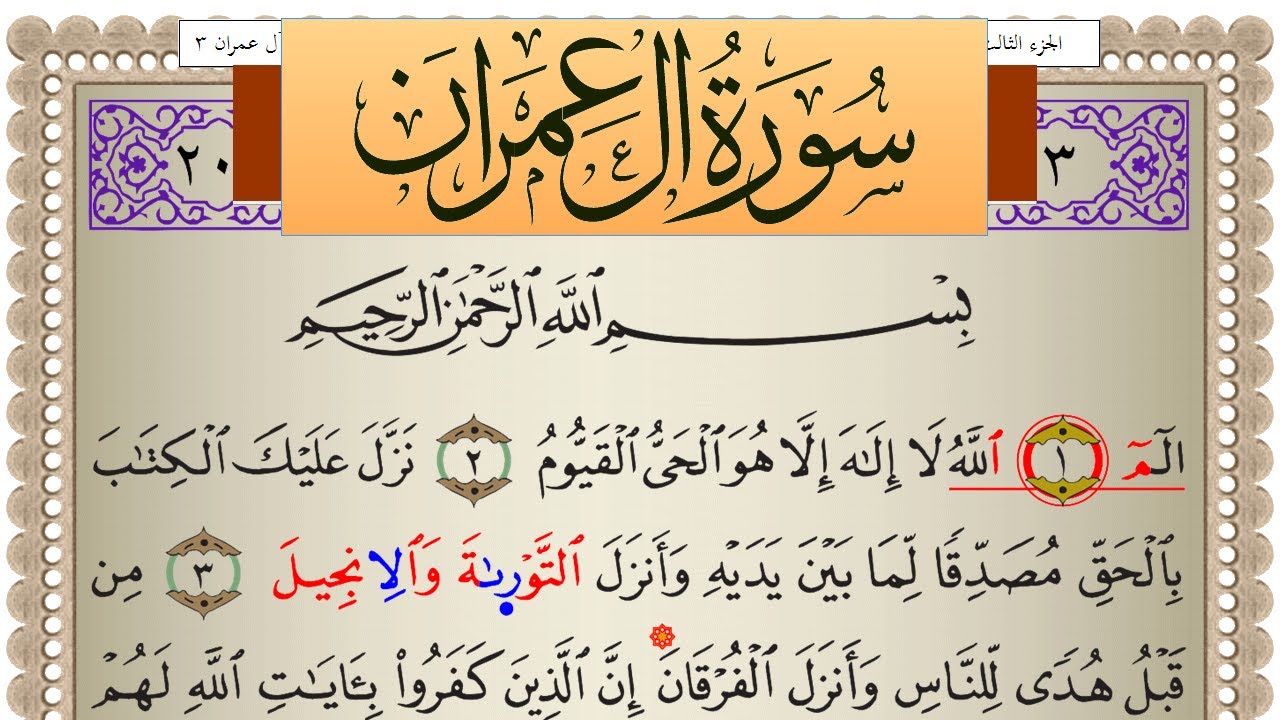 الجزء الثالث ل عمران ٣
سُورَةُ آلِ عِمْرَانَ
٣ ٢٠
بِسۡمِ ٱللَّهِ ٱلرَّحۡمَٰنِ ٱلرَّحِيمِ
الٓمٓ ١ ٱللَّهُ لَا إِلَٰهَ إِلَّا هُوَ ٱلۡحَيُّ ٱلۡقَيُّومُ ٢ نَزَّلَ عَلَيۡكَ ٱلۡكِتَٰبَ
بِٱلۡحَقِّ مُصَدِّقٗا لِّمَا بَيۡنَ يَدَيۡهِ وَأَنزَلَ ٱلتَّوۡر۪ىٰةَ وَٱلِانجِيلَ ٣ مِن
قَبۡلُ هُدٗى لِّلنَّاسِ وَأَنزَلَ ٱلۡفُرۡقَانَ إِنَّ ٱلَّذِينَ كَفَرُواْ بِـَٔايَٰتِ ٱللَّهِ لَهُمۡ